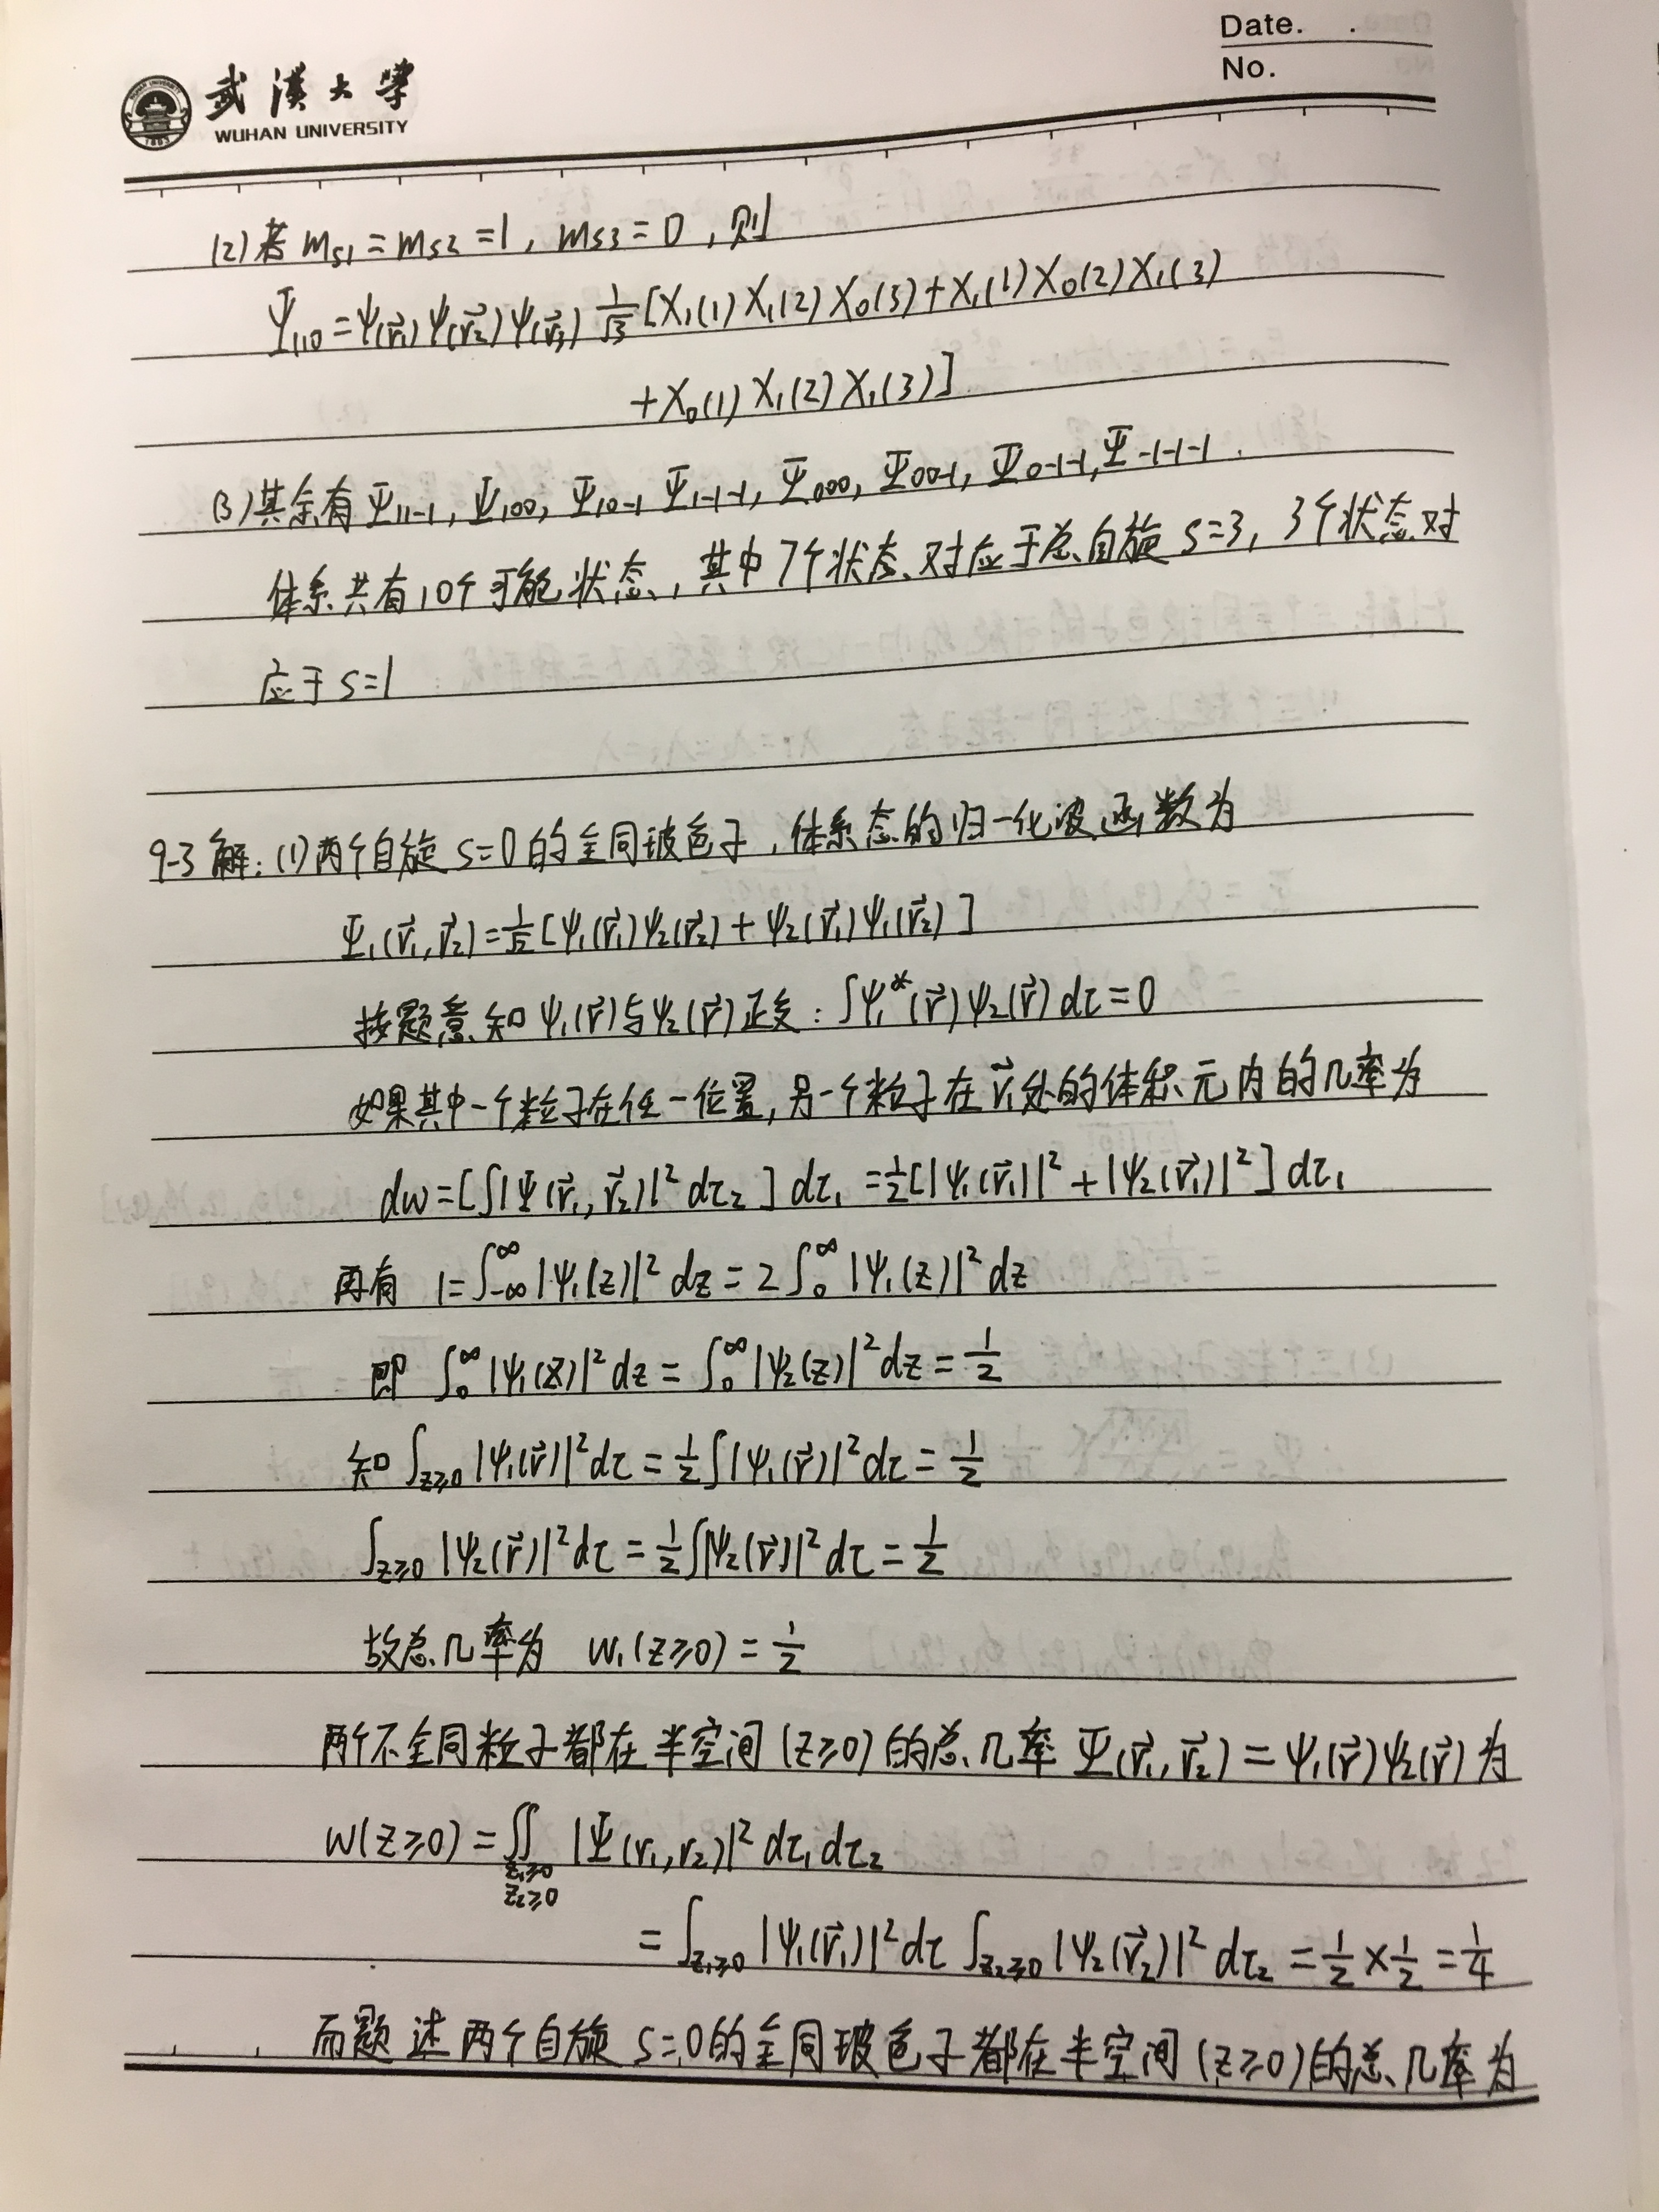 Date. .
No.
武漢大學
WUHAN UNIVERSITY
1893
(2)若 mS1 = mS2 = 1, mS3 = 0, 则
Ψ110 = ψ(r⃗1) ψ(r⃗2) ψ(r⃗3) 1/√3 [X1(1) X1(2) X0(3) + X1(1) X0(2) X1(3)
+ X0(1) X1(2) X1(3)]
(3)其余有 Ψ11-1, Ψ100, Ψ10-1 Ψ1-1-1, Ψ000, Ψ00-1, Ψ0-1-1, Ψ-1-1-1 .
体系共有10个可能状态, 其中7个状态对应于总自旋 S=3, 3个状态对
应于 S=1
9-3 解: (1)两个自旋 S=0的全同玻色子, 体系态的归一化波函数为
Ψ1(r⃗1, r⃗2) = 1/√2 [ψ1(r⃗1)ψ2(r⃗2) + ψ2(r⃗1)ψ1(r⃗2)]
按题意知 ψ1(r⃗)与ψ2(r⃗)正交: ∫ψ1*(r⃗)ψ2(r⃗) dτ = 0
如果其中一个粒子在任一位置, 另一个粒子在r⃗1处的体积元内的几率为
dw = [∫|Ψ(r⃗1, r⃗2)|² dτ2] dτ1 = 1/2[|ψ1(r⃗1)|² + |ψ2(r⃗1)|²] dτ1
再有 1 = ∫-∞^∞ |ψ1(z)|² dz = 2∫0^∞ |ψ1(z)|² dz
即 ∫0^∞ |ψ1(z)|² dz = ∫0^∞ |ψ2(z)|² dz = 1/2
知 ∫z≥0 |ψ1(r⃗)|² dτ = 1/2 ∫|ψ1(r⃗)|² dτ = 1/2
∫z≥0 |ψ2(r⃗)|² dτ = 1/2 ∫|ψ2(r⃗)|² dτ = 1/2
故总几率为 W1(z≥0) = 1/2
两个不全同粒子都在半空间(z≥0)的总几率 Ψ(r⃗1, r⃗2) = ψ1(r⃗)ψ2(r⃗)为
W(z≥0) = ∬z1≥0 z2≥0 |Ψ(r1, r2)|² dτ1 dτ2
= ∫z1≥0 |ψ1(r⃗1)|² dτ ∫z2≥0 |ψ2(r⃗2)|² dτ2 = 1/2 × 1/2 = 1/4
而题述两个自旋 S=0的全同玻色子都在半空间(z≥0)的总几率为